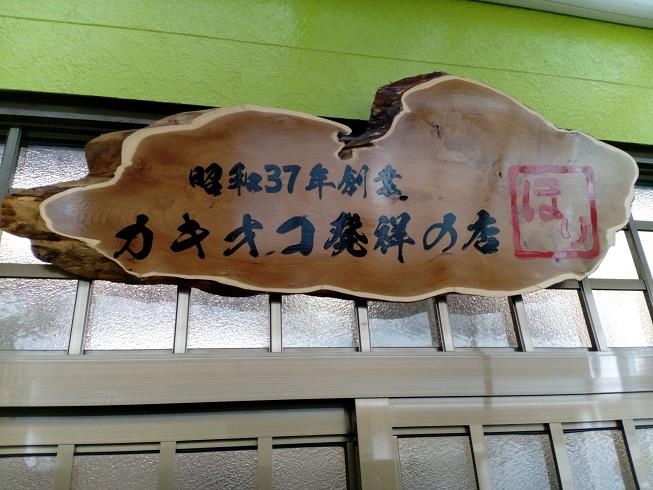 昭和37年創業
カキオコ発祥の店
ほり